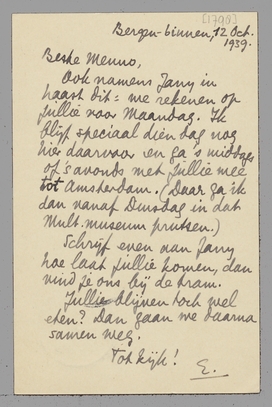 [1790]
Bergen-binnen, 12 Oct.
1939.
Beste Menno,
Ook namens Jany in
haast dit: we rekenen op
jullie voor Maandag. Ik
blijf speciaal dien dag nog
hier daarvoor en ga 's middags
of 's avonds met jullie mee
tot Amsterdam. (Daar ga ik
dan vanaf Dinsdag in dat
Mult. museum prutsen.)
Schrijf even aan Jany
hoe laat jullie komen, dan
vind je ons bij de tram.
Jullie blijven toch wel
eten? Dan gaan we daarna
samen weg.
Tot kijk!
E.